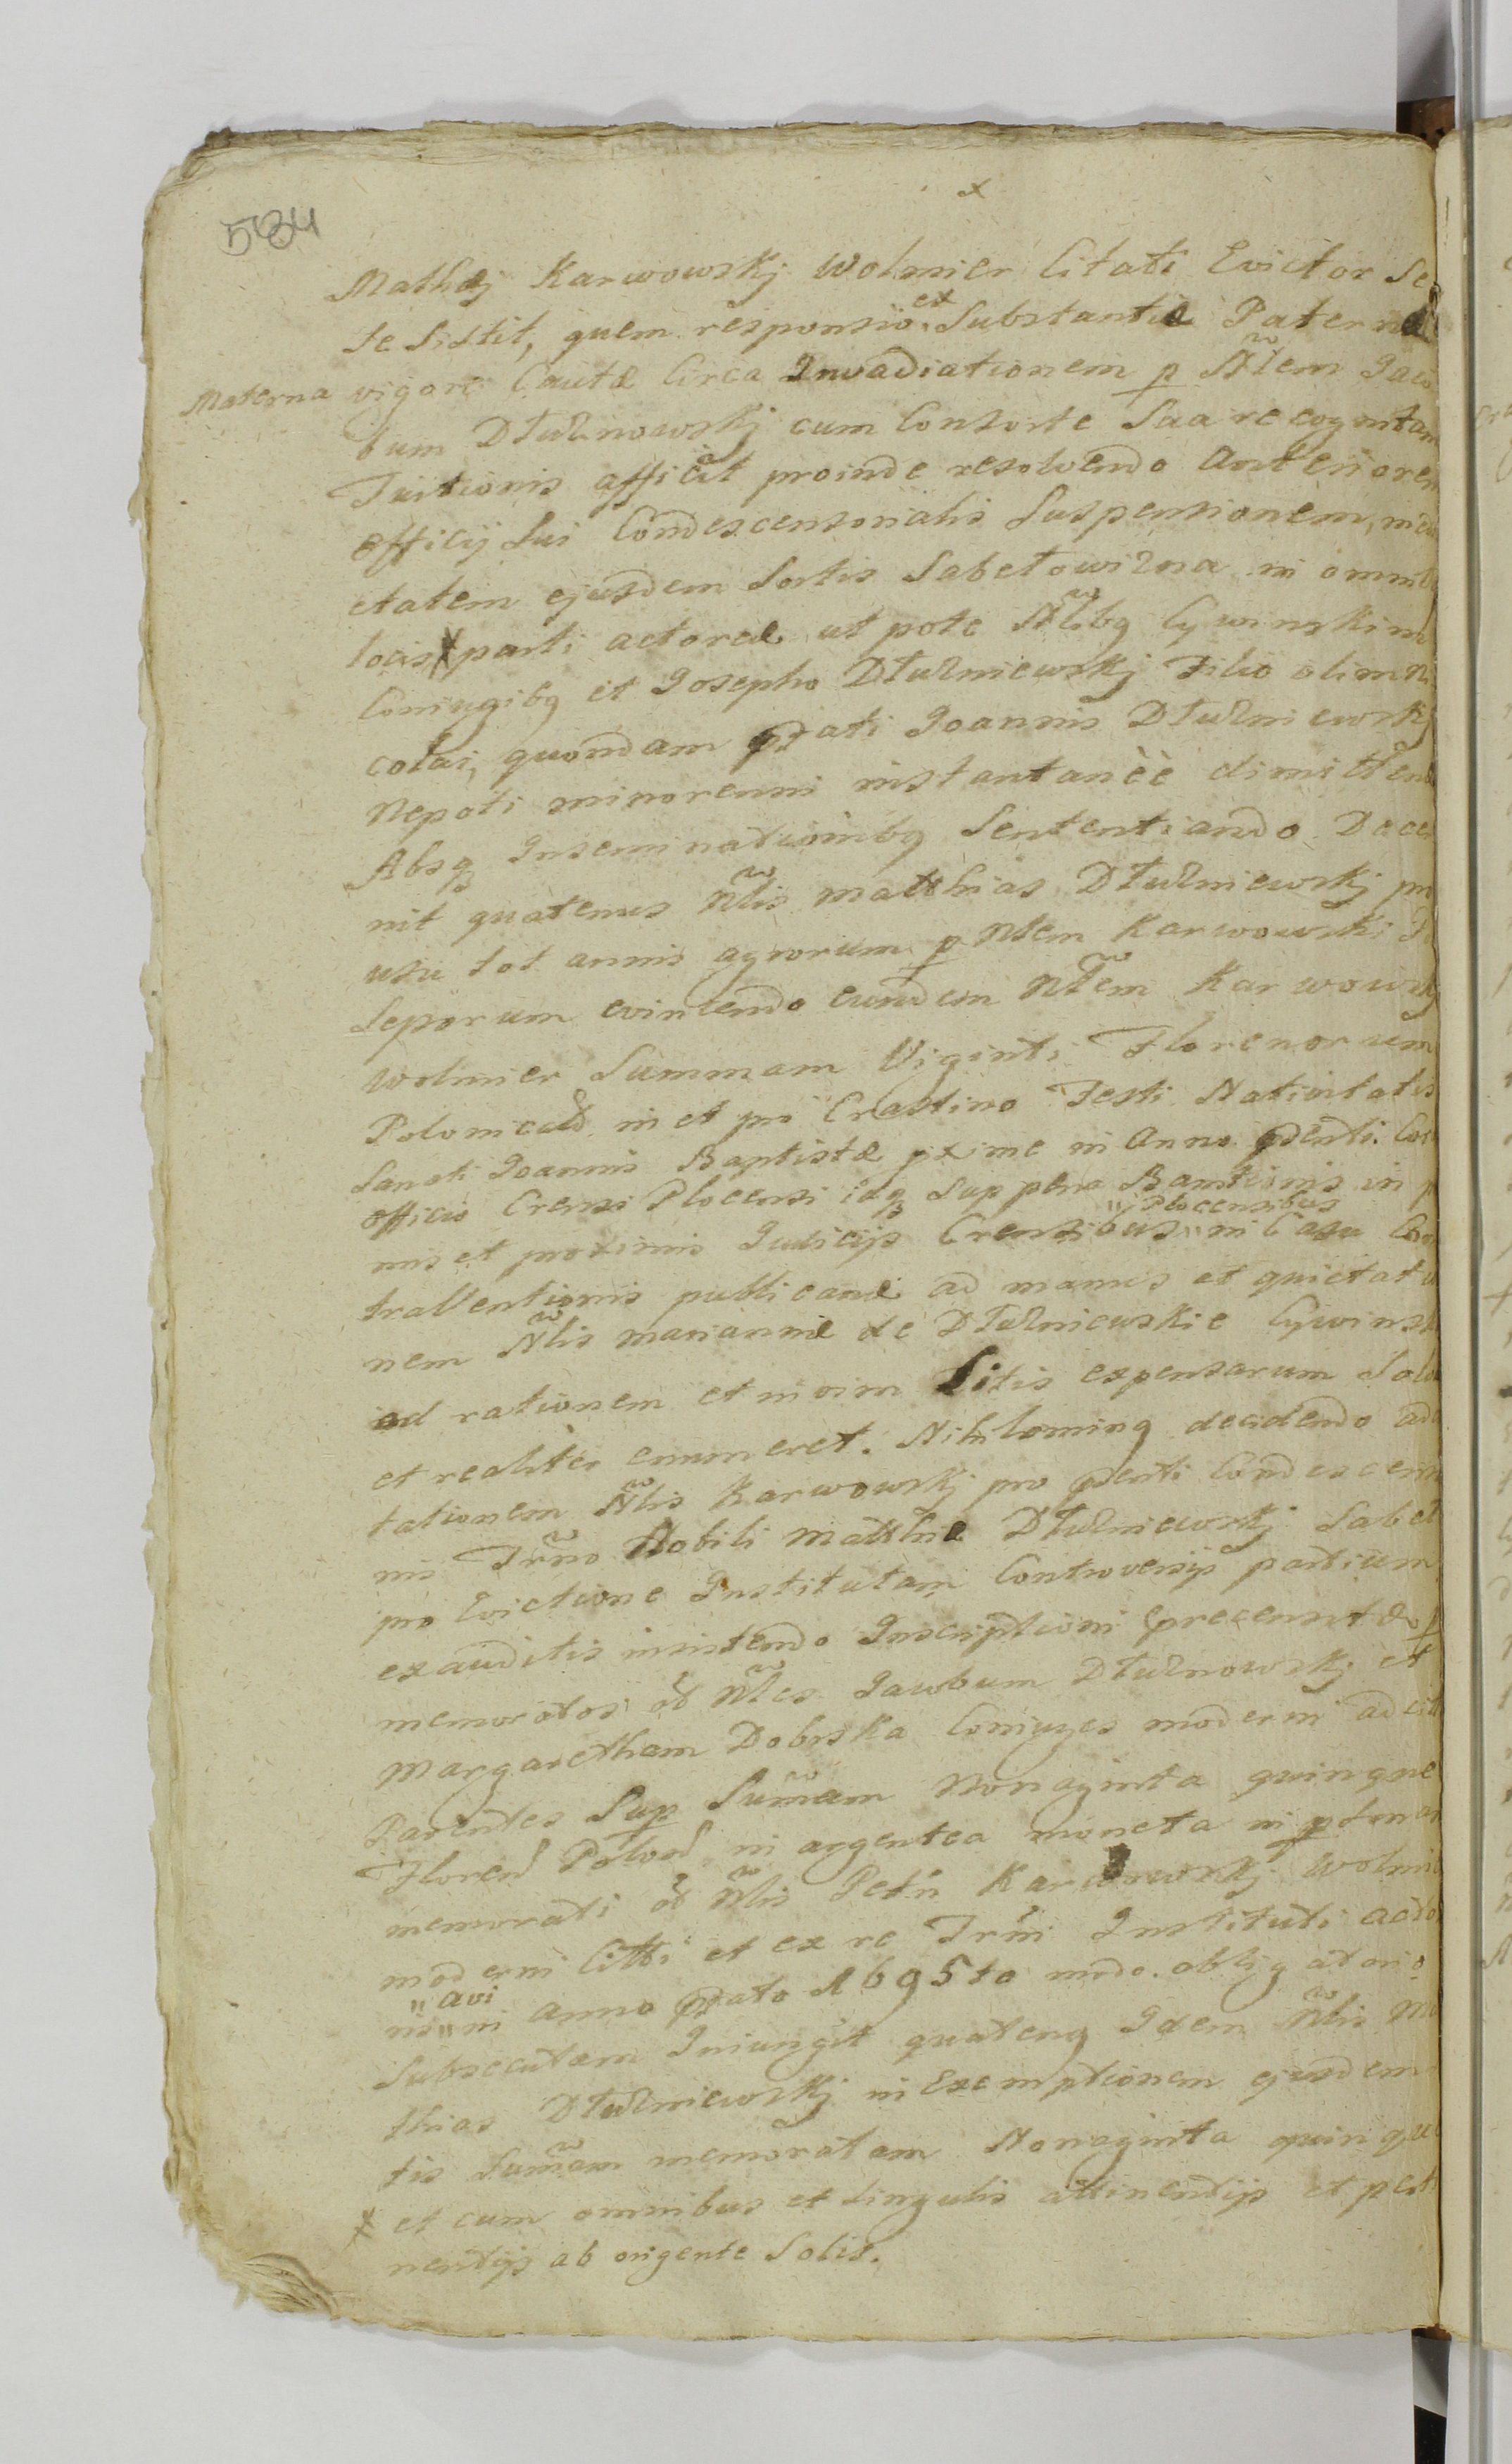 584
x
Mathæj Karwowskj Wolmier Citati Evictor Se
se sistit, quem responsio ex Substantiæ Paternæ
Materna vigore Cautæ Circa Invadiationem p Nlem Jaco
bum Dłużnowskj cum Consorte Sua recognitam
Tuitionis afficit proinde resolvendo Anteriorem
officij sui Condescensorialis Suspensionem,
etatem ejusdem Sortis Sabełowizna in omnib
locis x parti actoreæ ut pote Nlibq Cywinskim
Coniugibq et Josepho Dłużniewskj Filio olim Ni
colai, quondam pdati Joannis Dłużniewskj
Nepoti minorenni instantanèè dimitten
Absq Inseminationibq Sententiando Decer
nit quatenus Nlis Matthias Dłużniewskj pro
usu tot annis agrorum p Nlem Karwowski
Seporum evincendo eundem Nlem Karwowskj
Wolmier Summam Viginti Florenorum
Polonicad in et pro Crastino Festi Nativitatis
Sancti Joannis Baptistæ pxime in Anno pdenti Cor
officio Crensi Plocensi idq sup pena Bannionis in p
mis et proximis Judicijs Crensibus "Plocensibus" in Casu Con
traventionis publicandæ ad manus et quietatio
nem Nlis Mariannæ de Dłużniewskie Cywinsk
ad rationem et in vim Litis expensarum Solv
et realiter enumeret. Nihilominq decidendo
tationem Nlis Karwowskj pro pdenti Condescensi
nis Trmo Nobili Matthiæ Dłużniewskj Sabeł
pro Evictione Institutam Controversijs partium
exauditis insistendo Inscriptioni precensitæ p
memoratos od Nles Jacobum Dłużnowskj et
Margaretham Dobrska Coniuges moderni ad cit
Parentes Sup Summam Nonaginta quinque
Florend Polond in argentea moneta in psona
memorati od Nlis Petri Karwowskj Wolmie
moderni Citti et ex re Trmi Instituti acto
ris "avi" in Anno pdato 1695to modo obligatorio
Subsecutam Iniungit quatenq Idem Nlis Ma
thias Dłużniewskj in Exemptionem ejusdem
tis Summam memoratam Nonaginta quinque
x et cum omnibus et singulis attinentijs et perti
nentijs ab origente Solis.